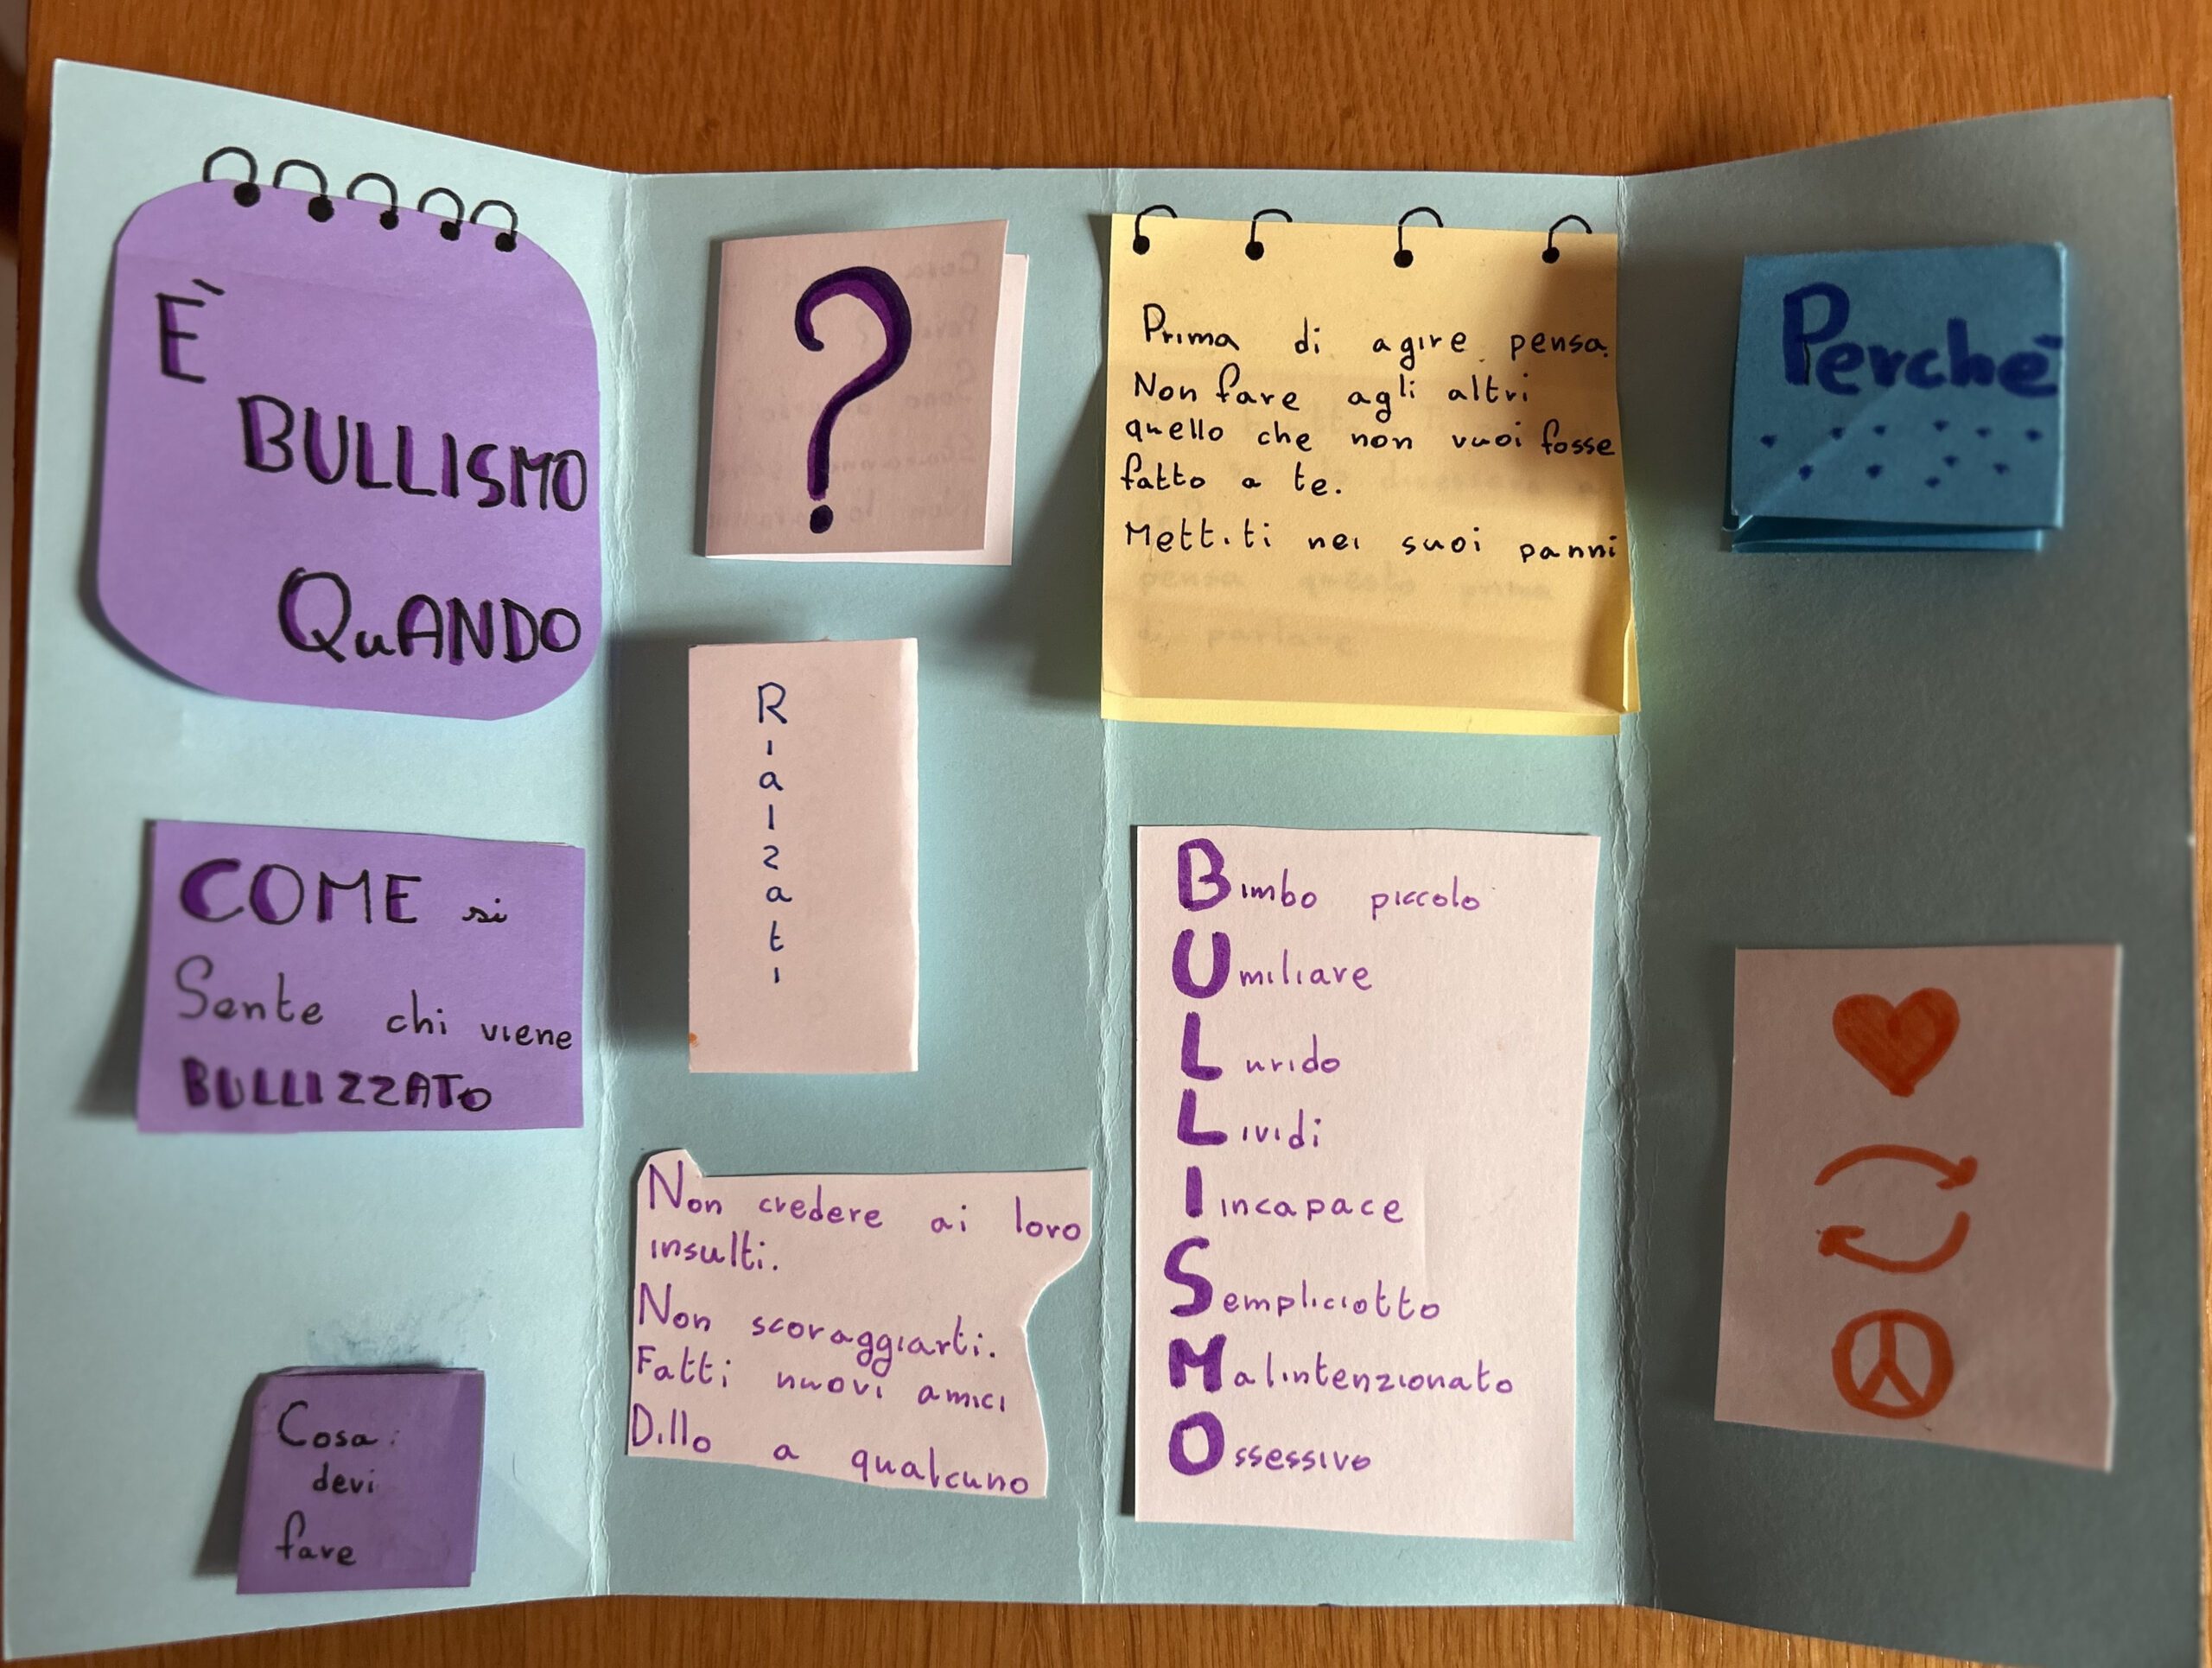 È
BULLISMO
QuANDO
COME si
Sente chi viene
BULLIZZATO
Cosa
devi
fare
?
Rialzati
Non credere ai loro
insulti.
Non scoraggiarti.
Fatti nuovi amici
Dillo a qualcuno
Prima di agire pensa.
Non fare agli altri
quello che non vuoi fosse
fatto a te.
Mettiti nei suoi panni
pensa questo prima
di parlare
Bimbo piccolo
Umiliare
Lurido
Lividi
Iincapace
Sempliciotto
Malintenzionato
Ossessivo
Perchè